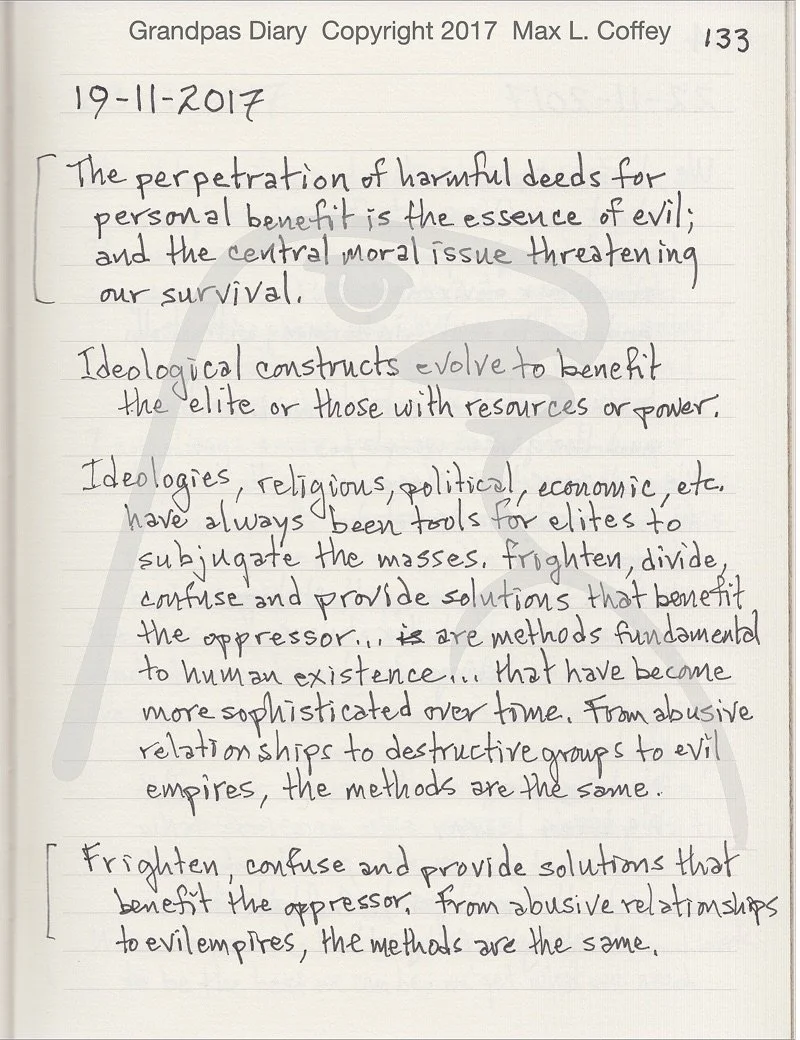 Grandpas Diary Copyright 2017 Max L. Coffey 133
19-11-2017
The perpetration of harmful deeds for
personal benefit is the essence of evil;
and the central moral issue threatening
our survival.
Ideological constructs evolve to benefit
the elite or those with resources or power.
Ideologies, religious, political, economic, etc.
have always been tools for elites to
subjugate the masses. frighten, divide,
confuse and provide solutions that benefit
the oppressor... is are methods fundamental
to human existence... that have become
more sophisticated over time. From abusive
relationships to destructive groups to evil
empires, the methods are the same.
Frighten, confuse and provide solutions that
benefit the oppressor. From abusive relationships
to evil empires, the methods are the same.